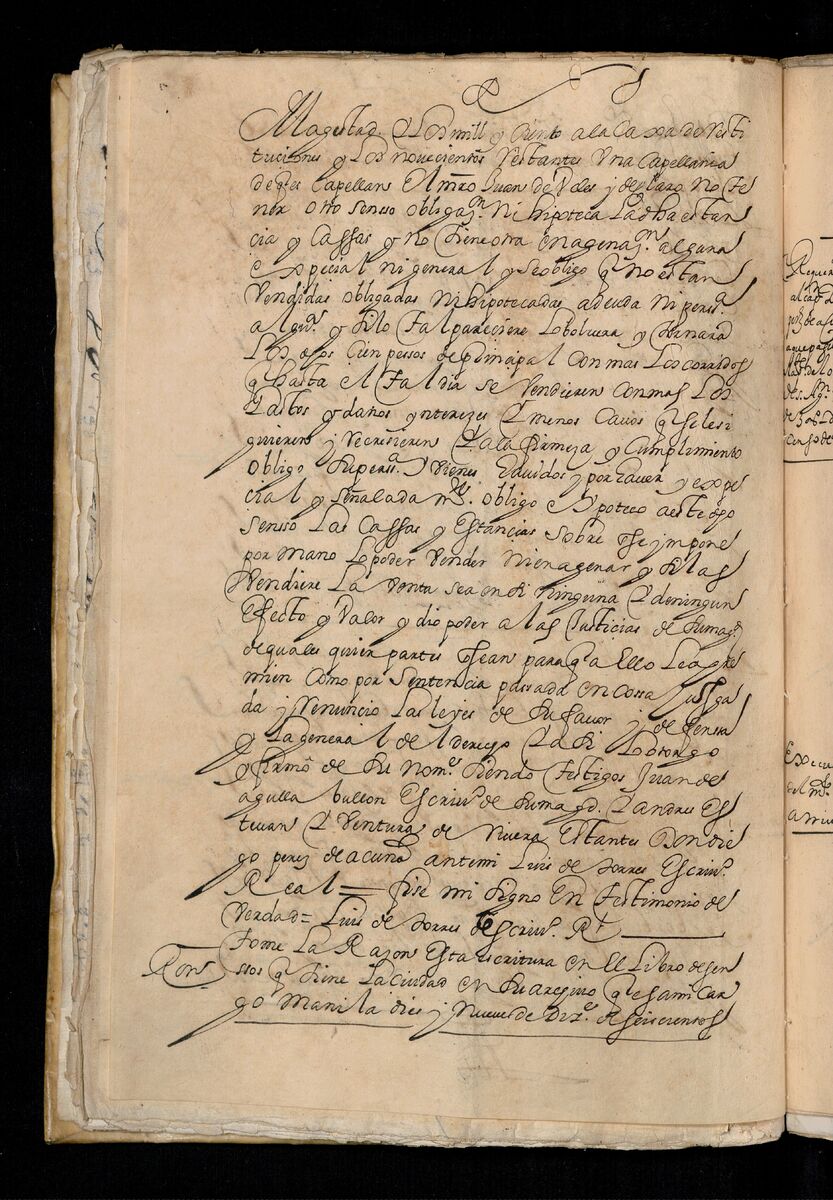 Magestad Y Los mill y ciento a la Caxa de Resti
tuciones y Los novecientos Restantes Una Capellania
de q̃ es Capellan El mro Juan de y declaro No te
ner otro senso obligaⁿ. Ni hipoteca La dha estan
cia y Cassas y no tiene otra enagenaⁿ. alguna
especial ni general y se obligo q̃ no estan
Vendidas obligadas Ni hipotecadas a deuda Ni persª
algª y si lo tal pareciere Lo bolvera y tornara
Los dhos Cien pessos de prinzipal con mas Los corridos
q̃ hasta el tal dia se Vendieren con mas Los
gastos y daños yntereses Y menos cavos q̃ se le si
guieren y Recrecieren Y a la firmeza y Cumplimiento
obligo su persª Y vienes havidos y por haver y espe
cial y señalada mte obligo e Ypoteco a este dho
sensso Las Cassas y Estancias sobre q̃ se ympone
por mano Lo poder Vender ni enagenar y si las
Vendiere La Venta sea en si ninguna Y de ningun
Efecto y Valor y dio poder a las Justicias de su magᵈ
de quales quier partes q̃ sean para q̃ a Ello Le apre
mien como por sentencia passada en cossa Jusga
da y Renuncio Las leyes de su favor y defensa
y La general del derecho Y assi Lo otorgo
y firmo de su Nomᵉ siendo testigos Juan de
aguila bullon Escrivº de su magd. Y andres Es
tevan Y Ventura de Rivera Estantes Don die
go perez de acuña ante mi Luis de torres Escrivº
Real = fise mi signo En testimonio de
Verdad = Luis de torres escrivº Rˡ
Razon
Tome La Razon Esta escritura en El Libro de sen
ssos q̃ tiene La ciudad en su archivo q̃ es a mi Car
go Manila dies y Nueve de Dizᵉ de seiscientos